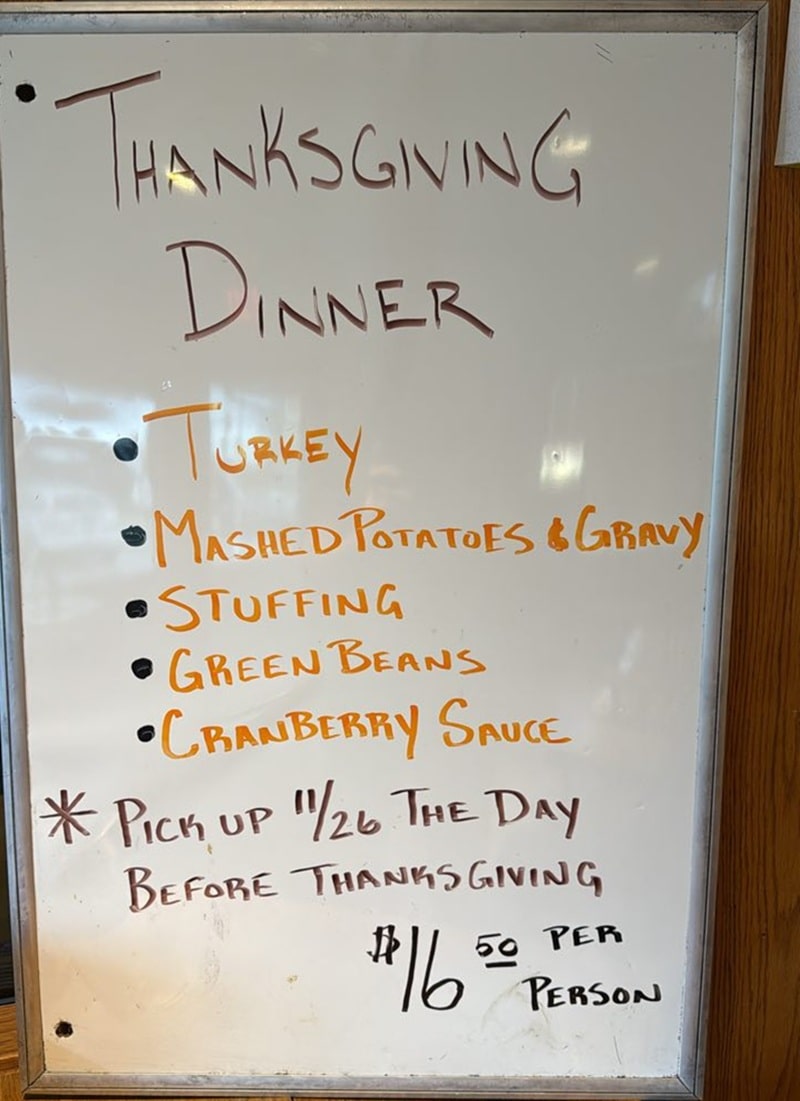 THANKSGIVING
DINNER
• TURKEY
• MASHED POTATOES & GRAVY
• STUFFING
• GREEN BEANS
• CRANBERRY SAUCE
* PICK UP 11/26 THE DAY
BEFORE THANKSGIVING
$16 50 PER
PERSON